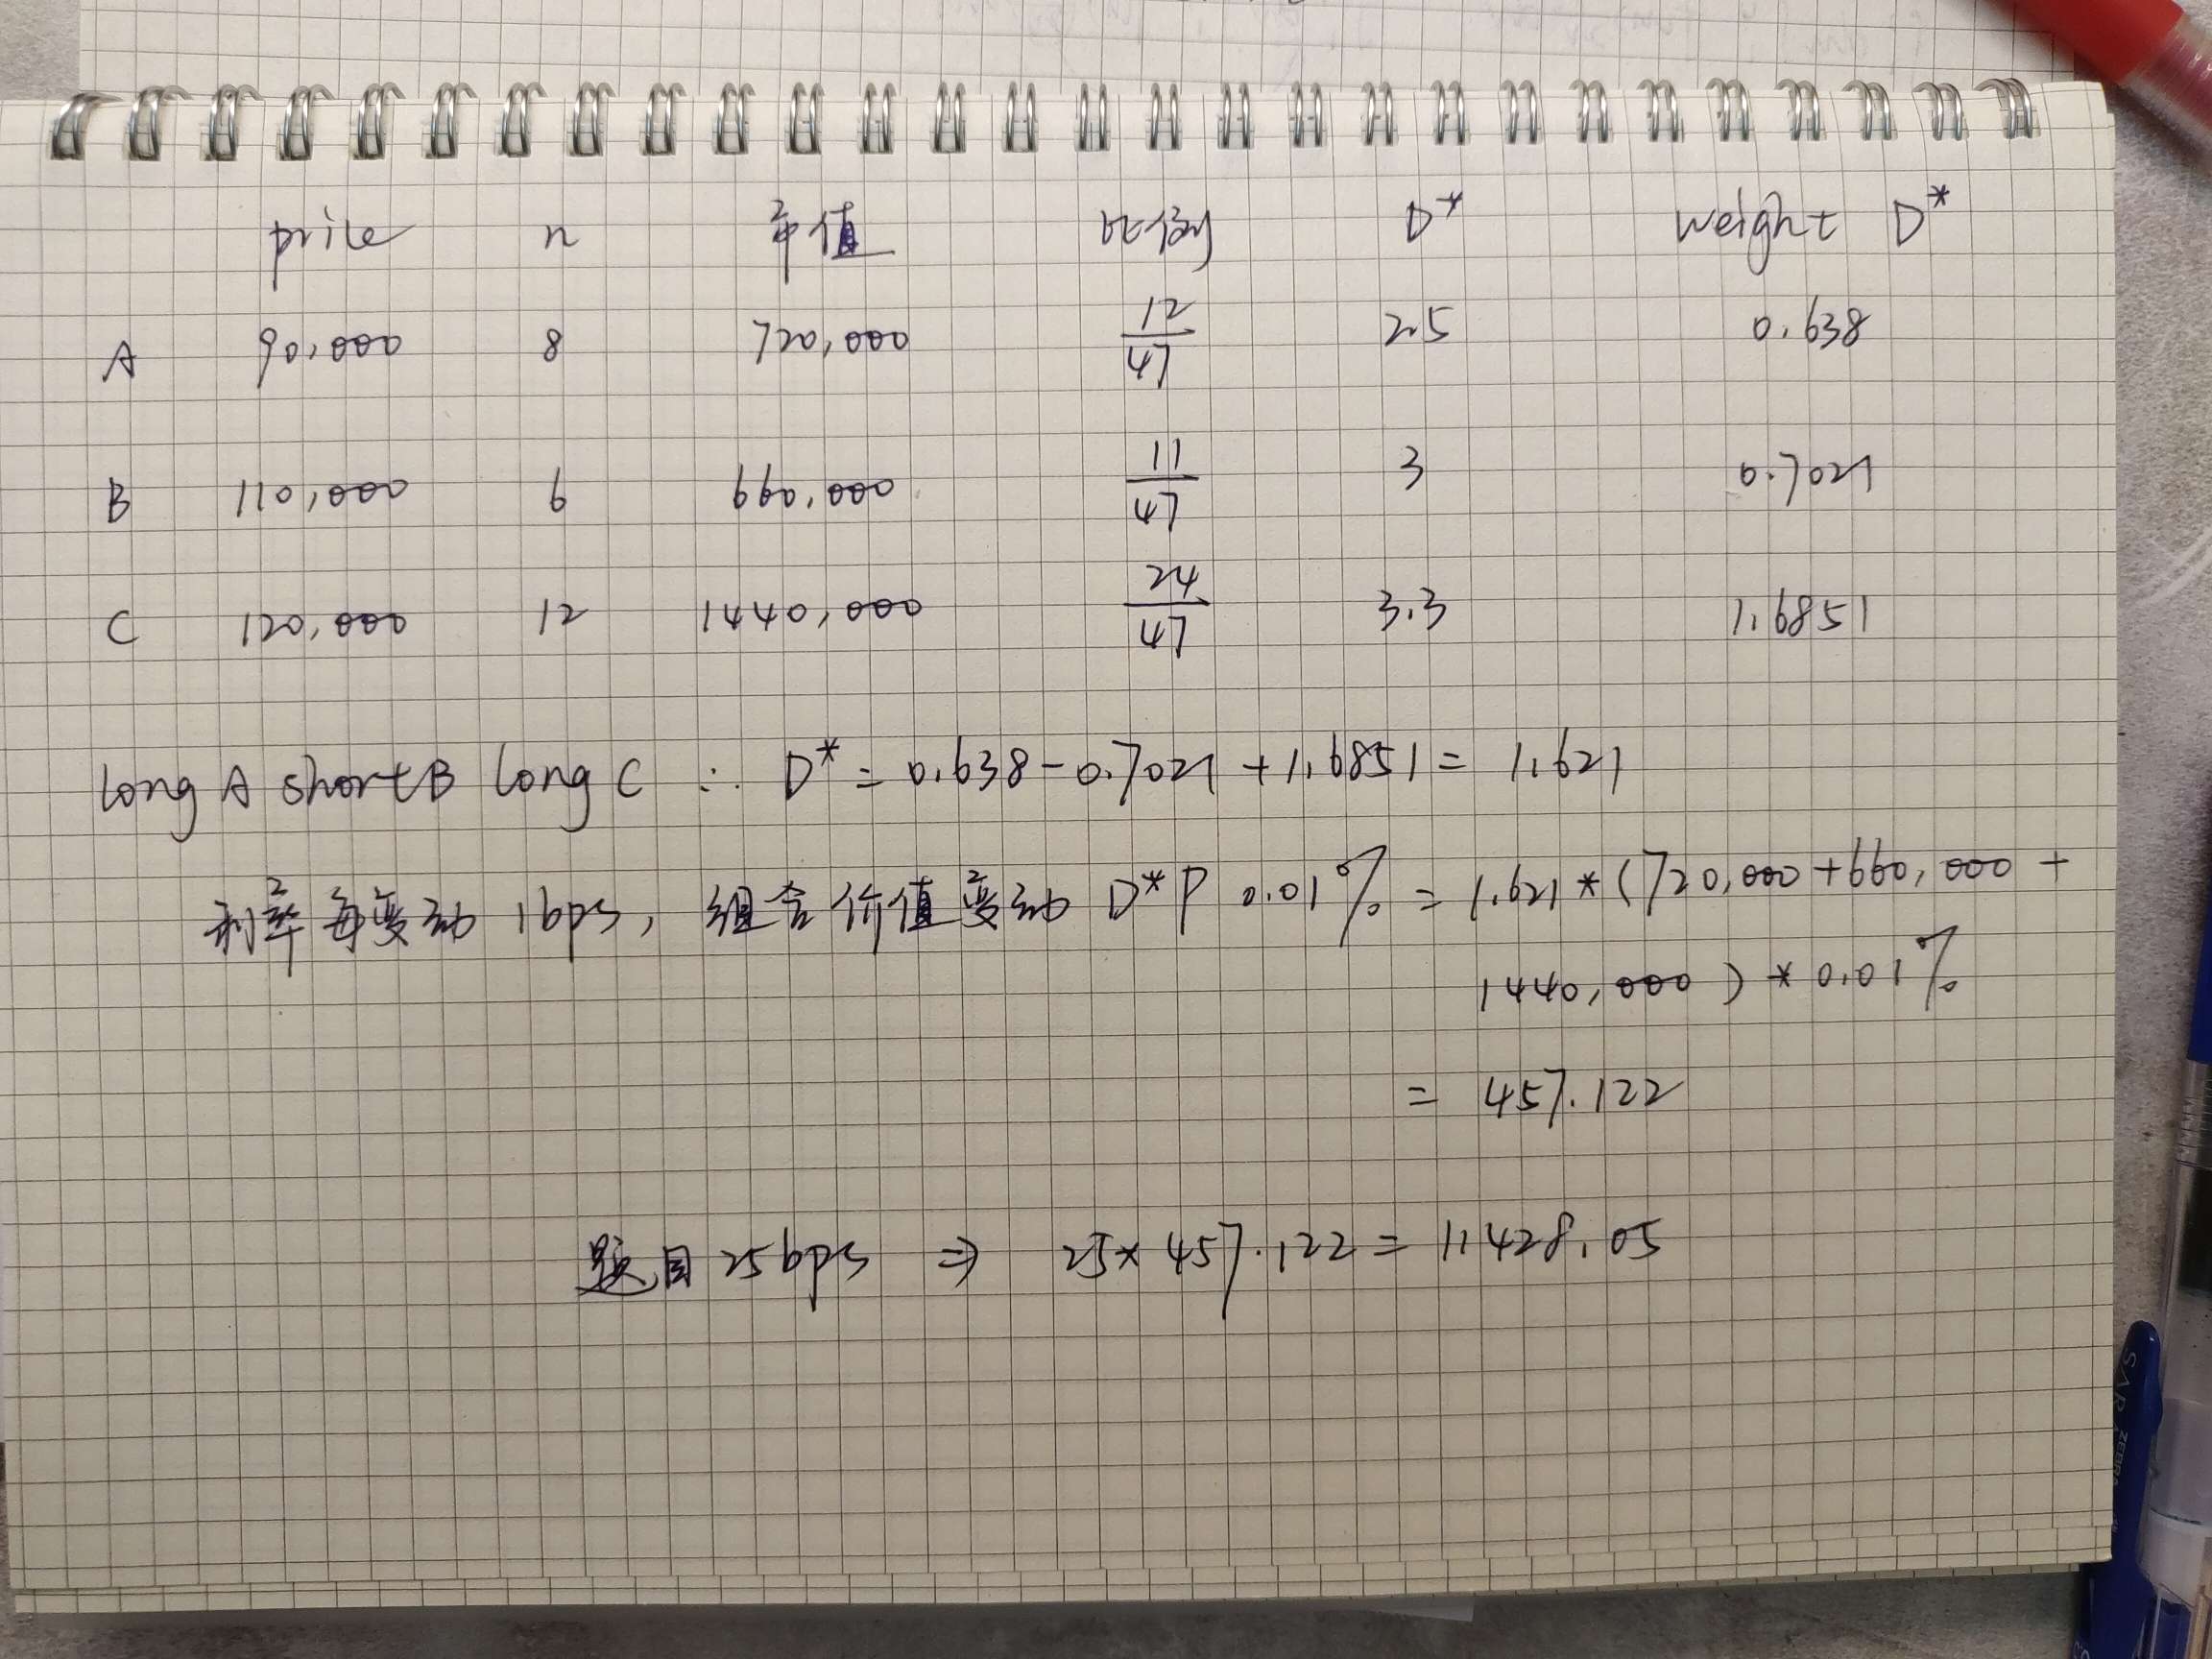 price n 市值 比例 D* weight D*
A 90,000 8 720,000 12/47 2.5 0.638
B 110,000 6 660,000 11/47 3 0.7021
C 120,000 12 1440,000 24/47 3.3 1.6851
long A short B long C ∴ D* = 0.638 - 0.7021 + 1.6851 = 1.621
利率每变动 1bps, 组合价值变动 D*P 0.01% = 1.621 * (720,000 + 660,000 +
1440,000) * 0.01%
= 457.122
题目 25bps ⇒ 25 × 457.122 = 11428.05
SARASA ZEBRA